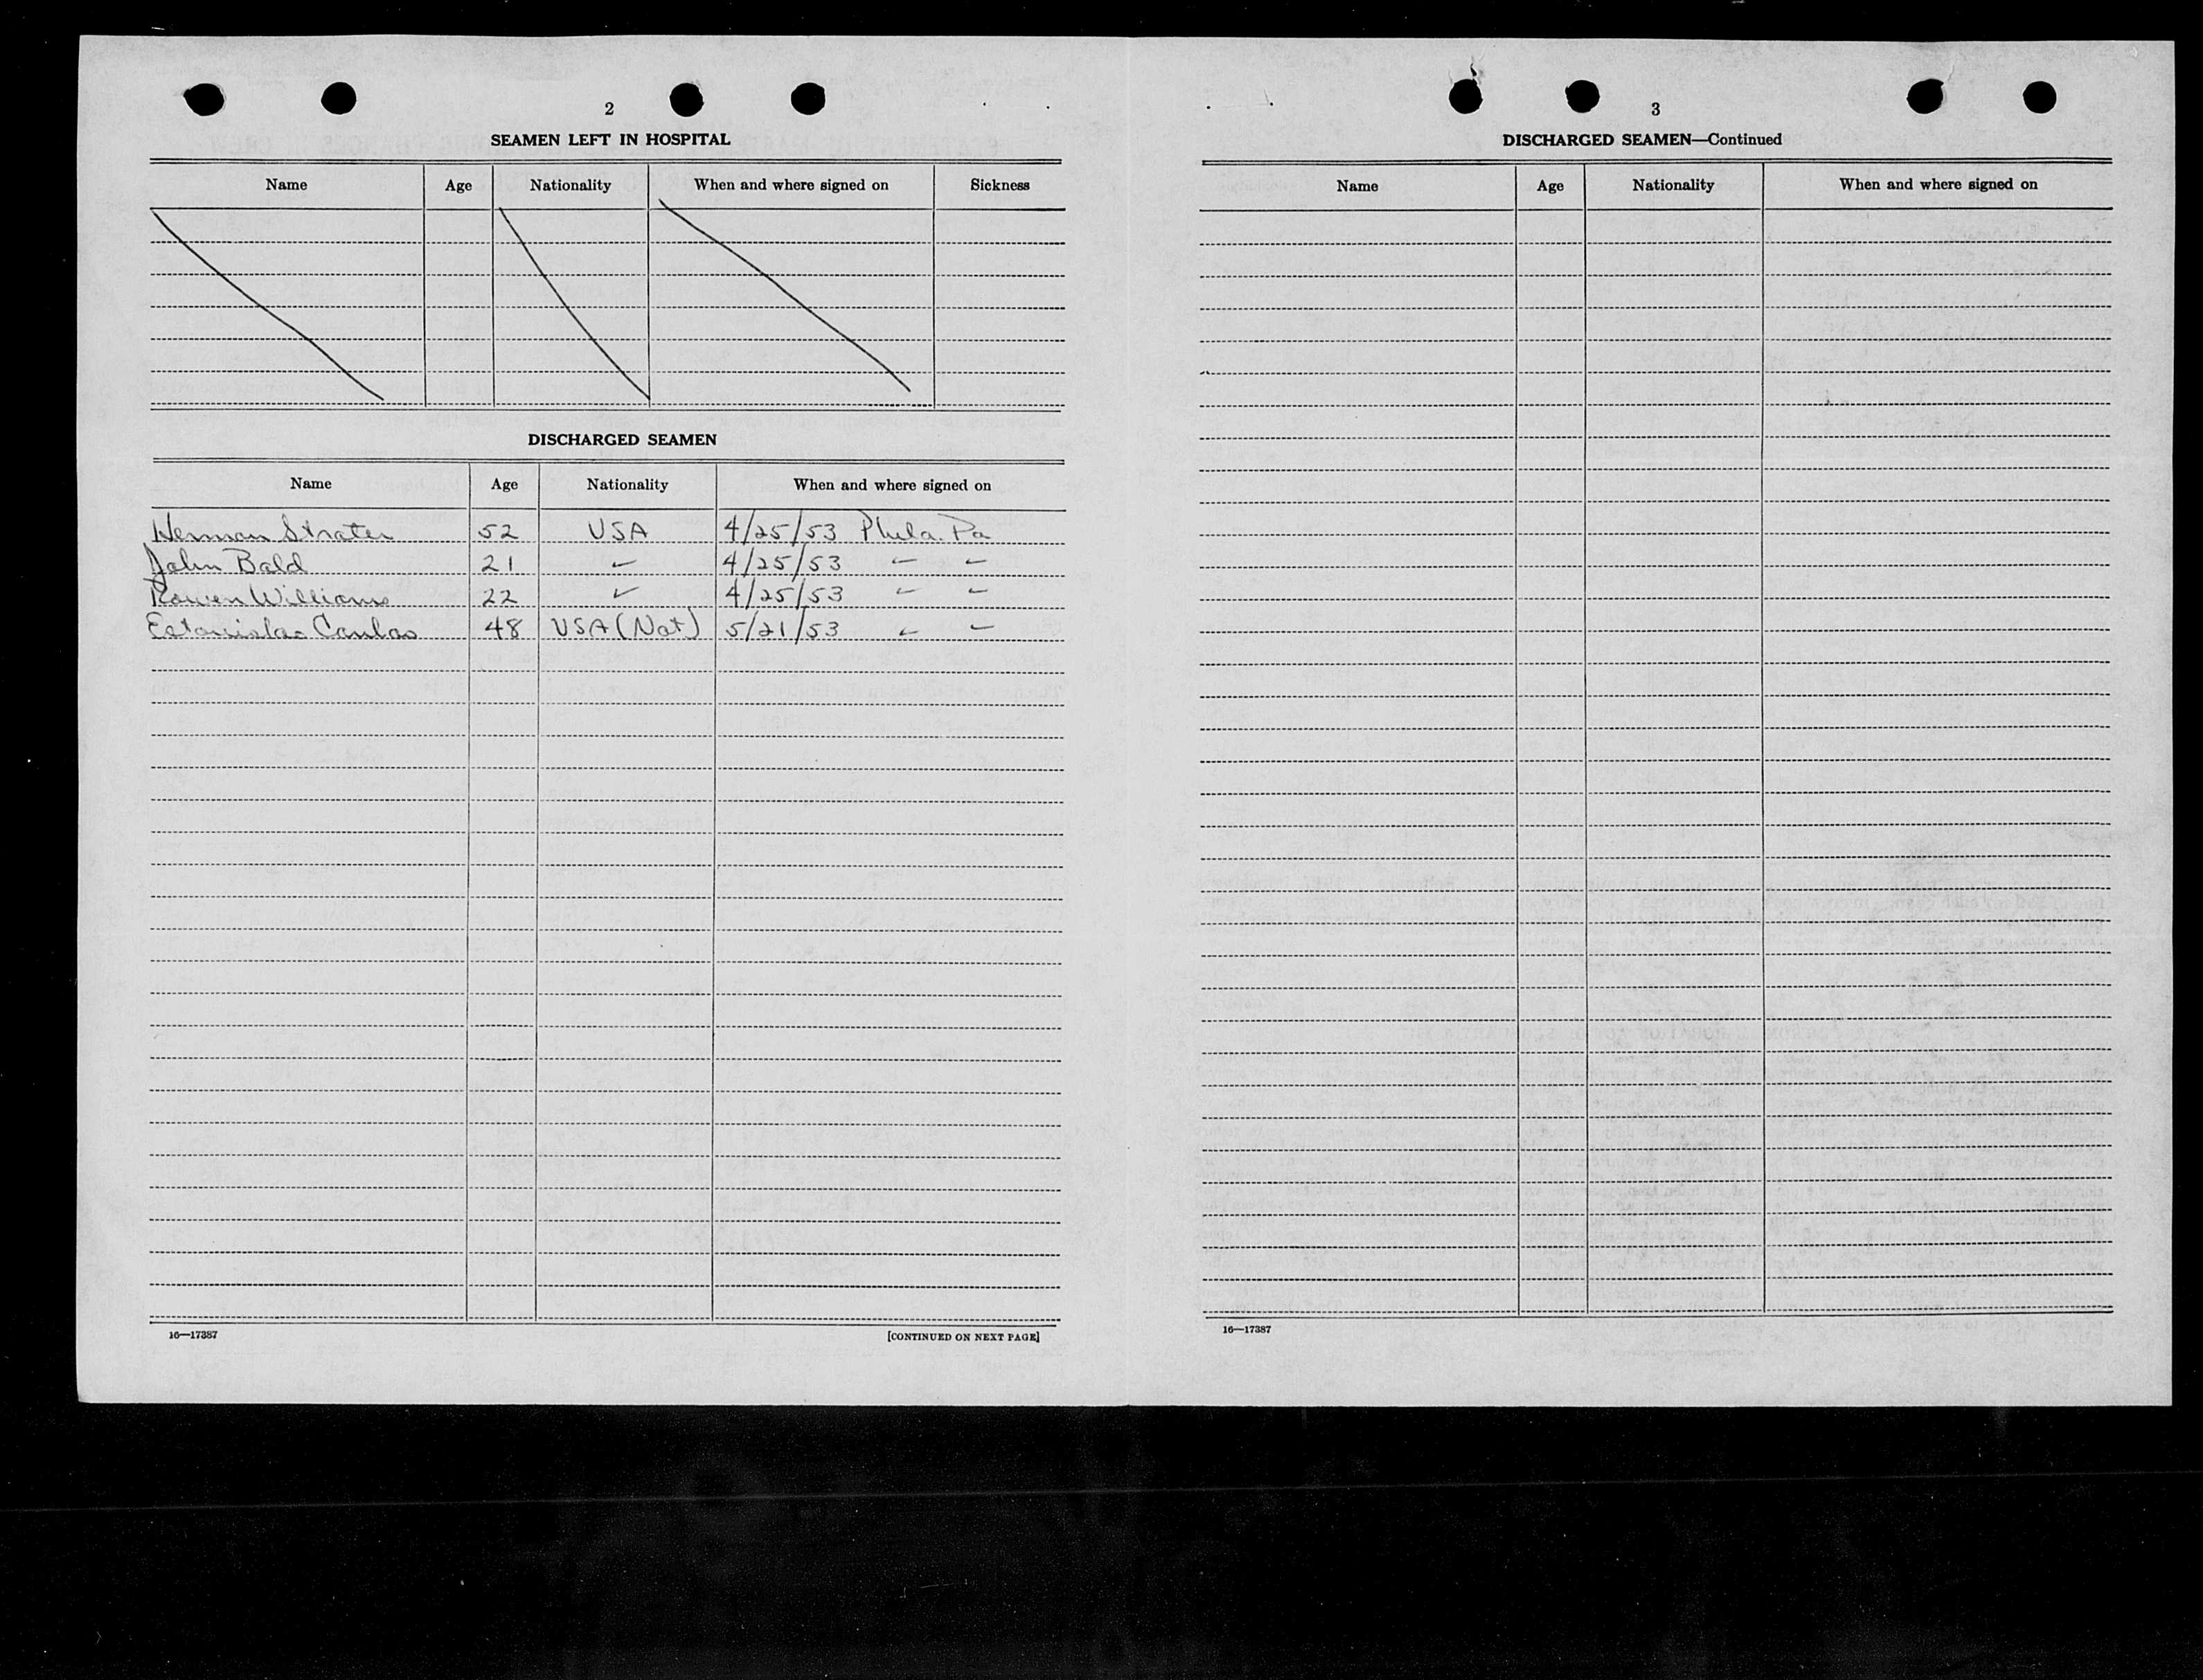 2
SEAMEN LEFT IN HOSPITAL
Name Age Nationality When and where signed on Sickness
DISCHARGED SEAMEN
Name Age Nationality When and where signed on
Herman Strater 52 USA 4/25/53 Phila. Pa
John Bald 21 " 4/25/53 " "
Rowen Williams 22 " 4/25/53 " "
Estanislao Canlas 48 USA (Nat) 5/21/53 " "
16—17387 [CONTINUED ON NEXT PAGE]
3
DISCHARGED SEAMEN—Continued
Name Age Nationality When and where signed on
16—17387